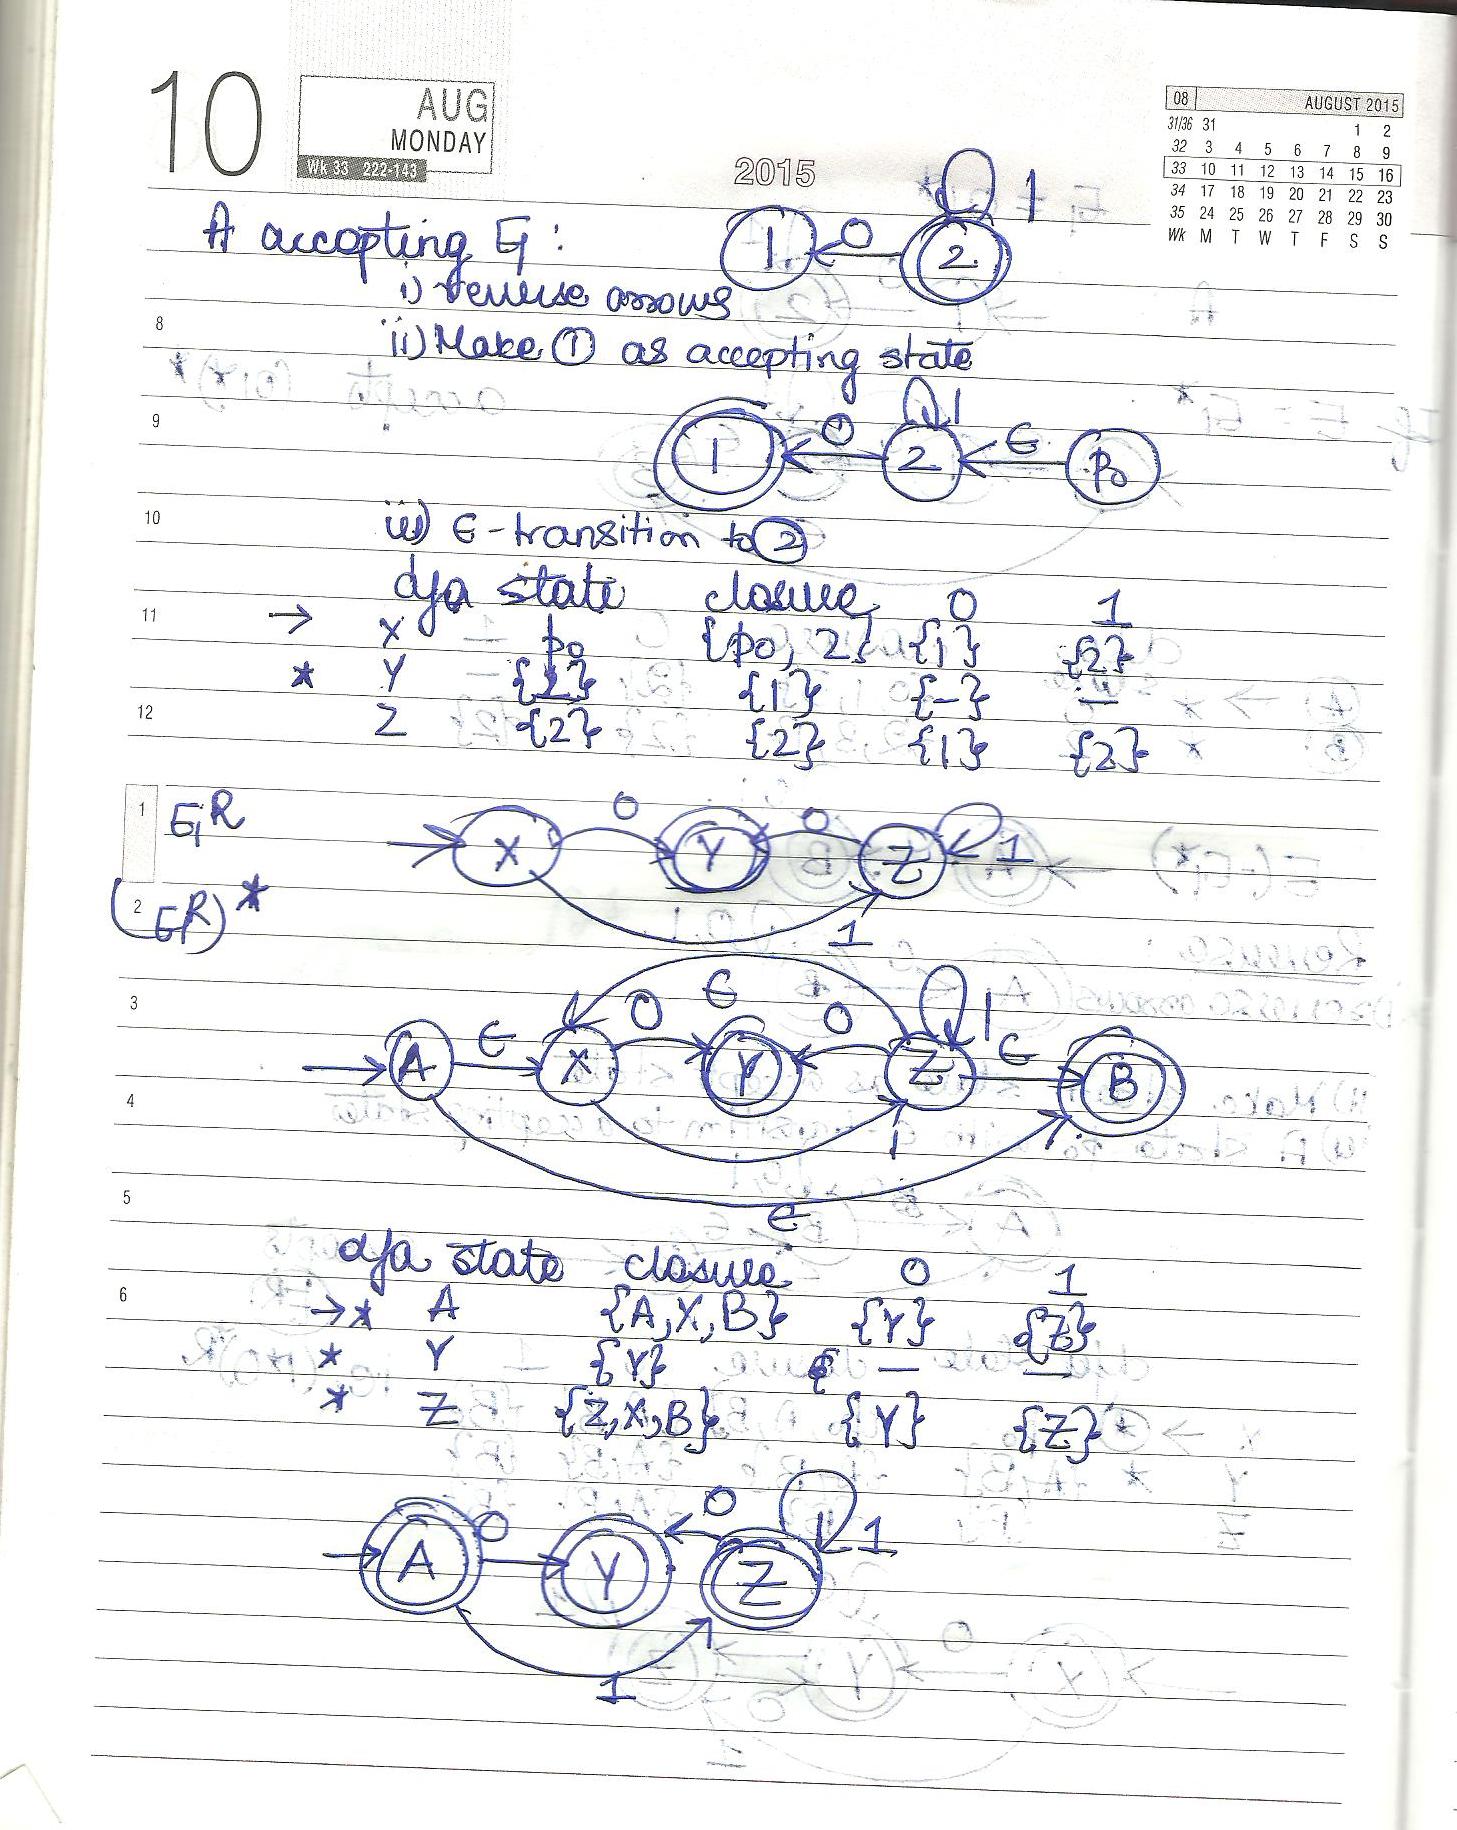 10
AUG
MONDAY
Wk 33 222-143
2015
08 AUGUST 2015
31/36 31 1 2
32 3 4 5 6 7 8 9
33 10 11 12 13 14 15 16
34 17 18 19 20 21 22 23
35 24 25 26 27 28 29 30
Wk M T W T F S S
A accepting E₁ :
1 0 2 1
i) reverse arrows
8
ii) Make ① as accepting state
9
1 0 2 1 ϵ p₀
10
iii) ϵ-transition to ②
dfa state closure 0 1
11
→ X p₀ {p₀, 2} {1} {2}
* Y {1} {1} {-} -
12
Z {2} {2} {1} {2}
1
E₁ᴿ X 0 Y 0 Z 1
1
2
(E₁ᴿ)*
3
A ϵ X 0 ϵ Y 0 Z 1 ϵ B
4
1
5
ϵ
dfa state closure 0 1
6
→* A {A,X,B} {Y} {Z}
* Y {Y} - -
* Z {Z,X,B} {Y} {Z}
A 0 Y 0 Z 1
1